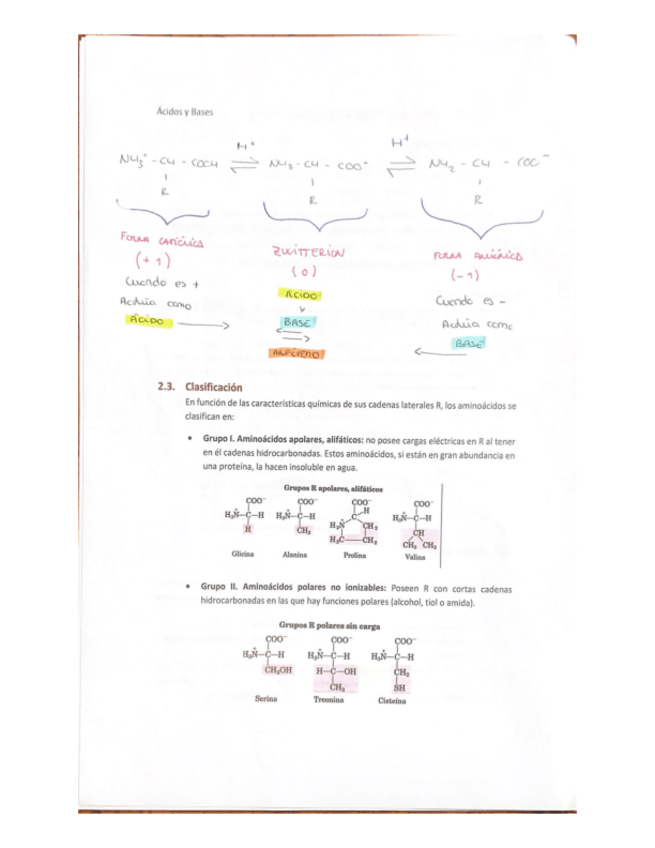 Ácidos y Bases
H⁺ H⁺
NH₃⁺ - CH - COOH ⇌ NH₃ - CH - COO⁻ ⇌ NH₂ - CH - COO⁻
R R R
FORMA CATIÓNICA ZWITTERION FORMA ANIÓNICA
(+1) (0) (-1)
Cuando es + ÁCIDO Cuando es -
Actúa como BASE Actúa como
ÁCIDO ANFÓTERO BASE
2.3. Clasificación
En función de las características químicas de sus cadenas laterales R, los aminoácidos se
clasifican en:
• Grupo I. Aminoácidos apolares, alifáticos: no posee cargas eléctricas en R al tener
en él cadenas hidrocarbonadas. Estos aminoácidos, si están en gran abundancia en
una proteína, la hacen insoluble en agua.
Grupos R apolares, alifáticos
COO⁻ COO⁻ COO⁻ COO⁻
H₃N⁺—C—H H₃N⁺—C—H C—H H₃N⁺—C—H
H CH₃ H₂N⁺ CH₂ CH
H₂C—CH₂ CH₃ CH₃
Glicina Alanina Prolina Valina
• Grupo II. Aminoácidos polares no ionizables: Poseen R con cortas cadenas
hidrocarbonadas en las que hay funciones polares (alcohol, tiol o amida).
Grupos R polares sin carga
COO⁻ COO⁻ COO⁻
H₃N⁺—C—H H₃N⁺—C—H H₃N⁺—C—H
CH₂OH H—C—OH CH₂
CH₃ SH
Serina Treonina Cisteína